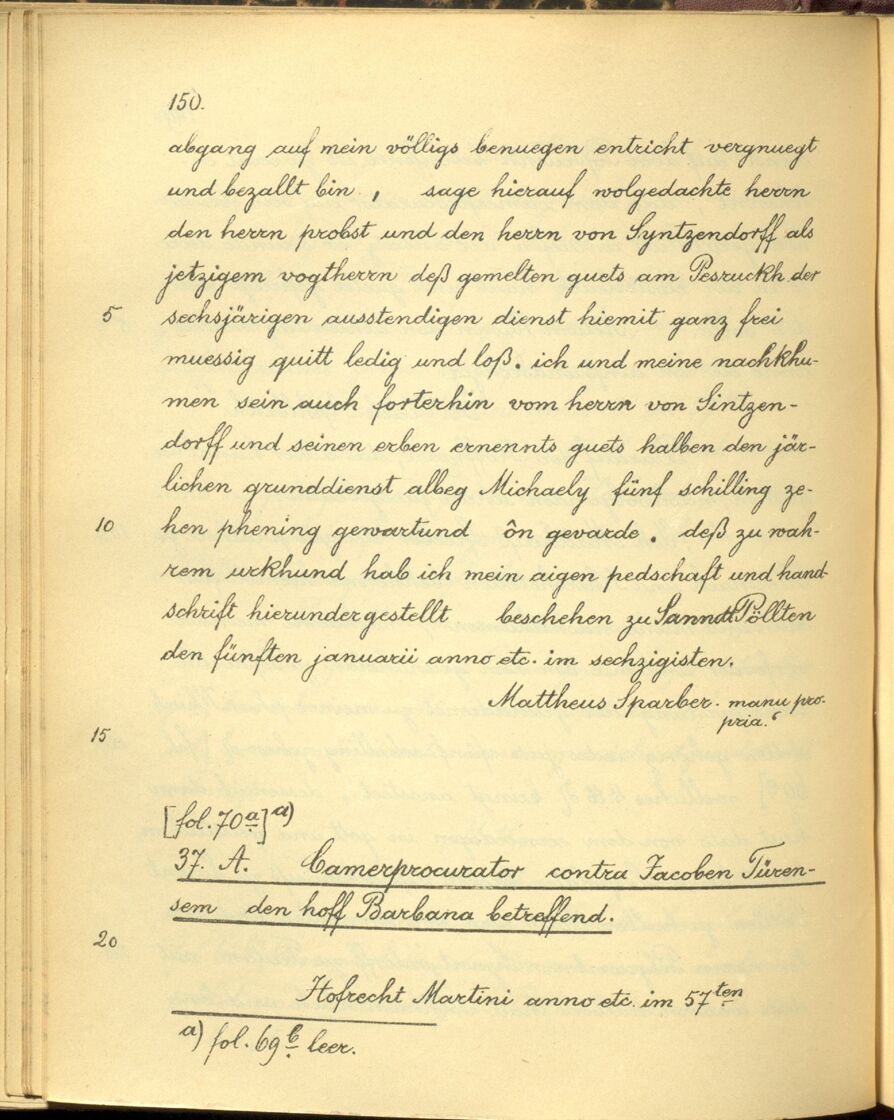 150.
abgang auf mein völligs benuegen entricht vergnuegt
und bezallt bin, sage hierauf wolgedachte herrn
den herrn probst und den herrn von Syntzendorff als
jetzigem vogtherrn deß gemelten guets am Pesruckh der
5 sechsjärigen ausstendigen dienst hiemit ganz frei
muessig quitt ledig und loß. ich und meine nachkhu-
men sein auch forterhin vom herrn von Sintzen-
dorff und seinen erben ernennts guets halben den jär-
lichen grunddienst albeg Michaely fünf schilling ze-
10 hen phening gewartund ôn gevarde. deß zu wah-
rem urkhund hab ich mein aigen pedschaft und hand-
schrift hierunder gestellt beschehen zu Sannдt Pöllten
den fünften januarii anno etc. im sechzigisten.
Mattheus Sparber. manu pro-
pria.
15
[fol. 70a]a)
37. A. Camerprocurator contra Jacoben Türen-
sem den hoff Barbana betreffend.
20
Hofrecht Martini anno etc. im 57ten
a) fol. 69b leer.